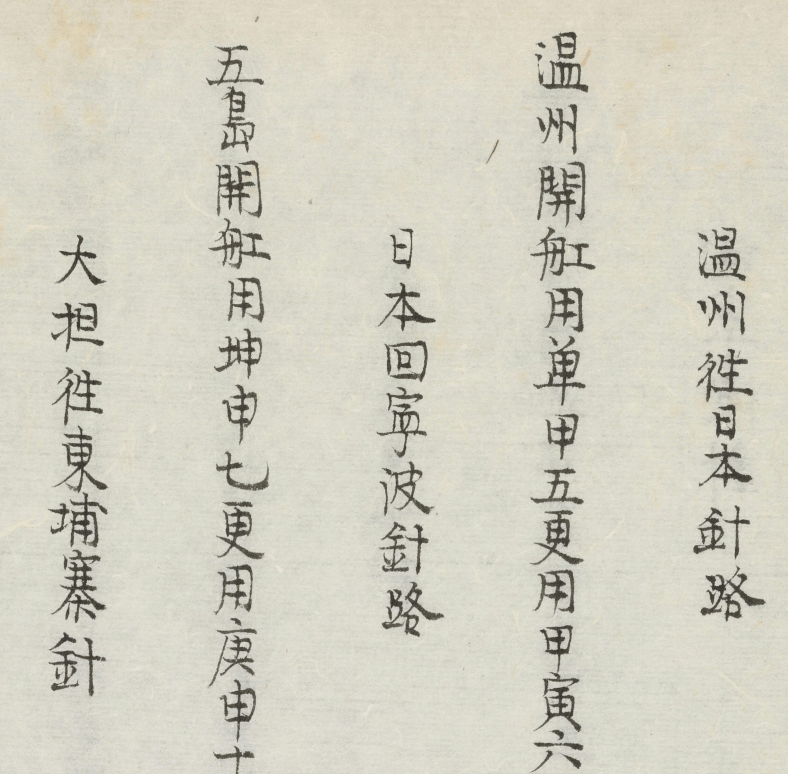 温州徃日本針路
温州開舡用单甲五更用甲寅六
日本回寧波針路
五島開舡用坤申七更用庚申十
大担徃東埔寨針